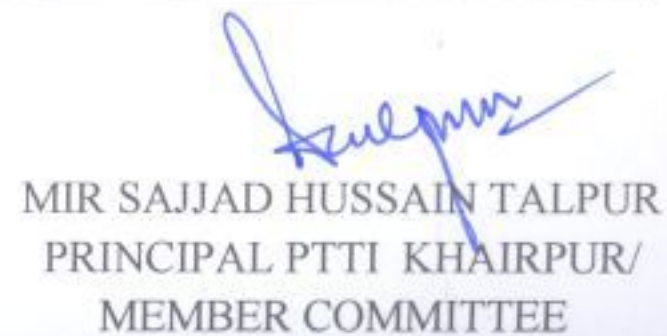 MIR SAJJAD HUSSAIN TALPUR
PRINCIPAL PTTI KHAIRPUR/
MEMBER COMMITTEE